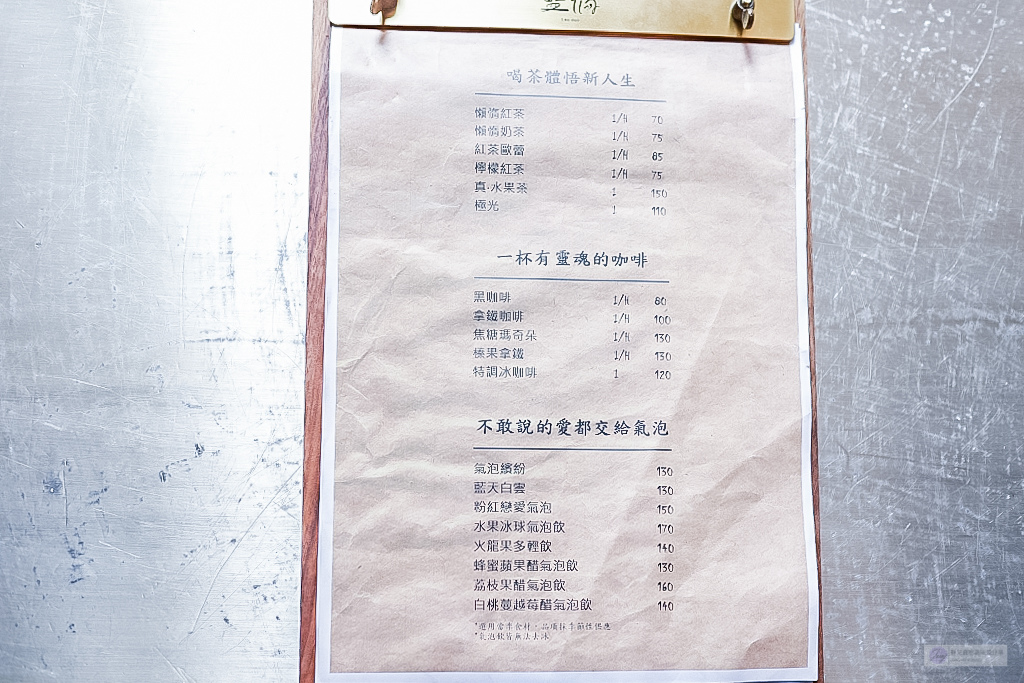 喝茶體悟新人生
懶惰紅茶 I/H 70
懶惰奶茶 I/H 75
紅茶歐蕾 I/H 85
檸檬紅茶 I/H 75
真·水果茶 I 150
極光 I 110
一杯有靈魂的咖啡
黑咖啡 I/H 80
拿鐵咖啡 I/H 100
焦糖瑪奇朵 I/H 130
榛果拿鐵 I/H 130
特調冰咖啡 I 120
不敢說的愛都交給氣泡
氣泡繽紛 130
藍天白雲 130
粉紅戀愛氣泡 150
水果冰球氣泡飲 170
火龍果多輕飲 140
蜂蜜蘋果醋氣泡飲 130
荔枝果醋氣泡飲 160
白桃蔓越莓醋氣泡飲 140
*選用當季食材，品項採季節性供應
*氣泡飲皆無法去冰